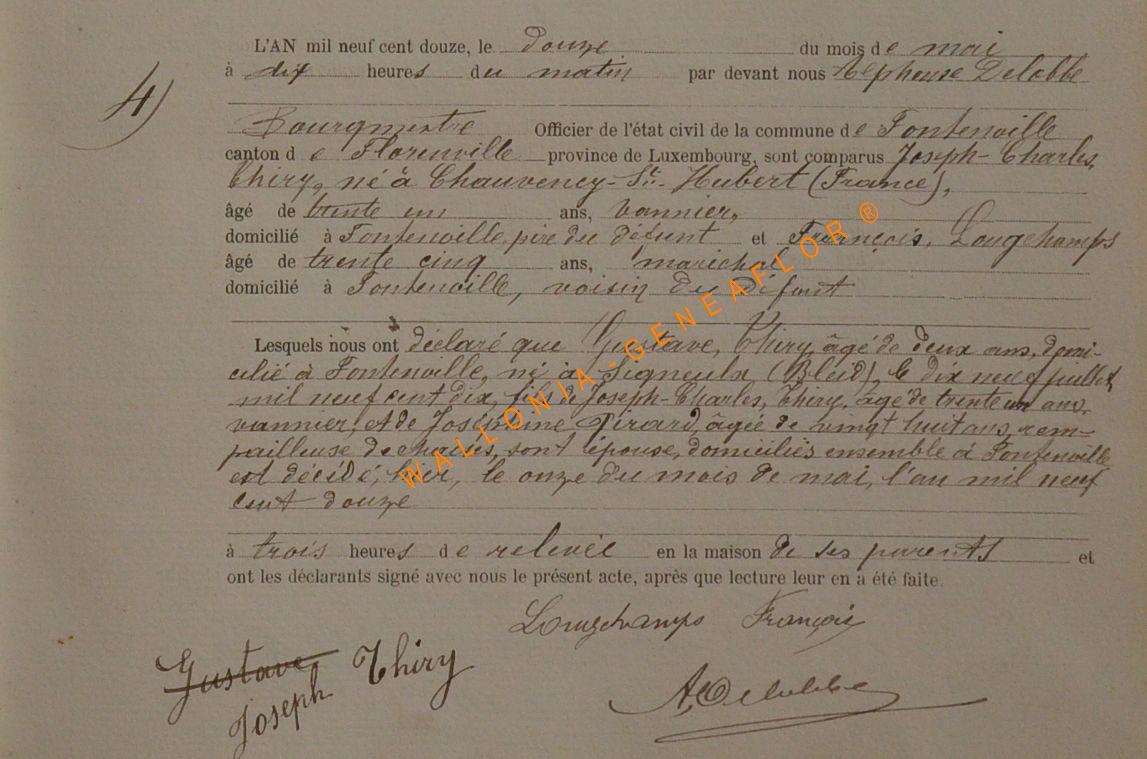 4)
L'AN mil neuf cent douze, le douze du mois de mai
à dix heures du matin par devant nous Alphonse Delobbe
Bourgmestre Officier de l'état civil de la commune de Fontenoille
canton de Florenville province de Luxembourg, sont comparus Joseph-Charles,
Thiry, né à Chauvency-St-Hubert (France),
âgé de trente un ans, vannier,
domicilié à Fontenoille, père du défunt et François, Longchamps
âgé de trente cinq ans, maréchal
domicilié à Fontenoille, voisin du défunt
Lesquels nous ont déclaré que Gustave, Thiry, âgé de deux ans, domi-
cilié à Fontenoille, né à Signeulx (Bleid), le dix neuf juillet
mil neuf cent dix, fils de Joseph-Charles, Thiry, âgé de trente un ans,
vannier, et de Joséphine Pirard, âgée de vingt huit ans, rem-
pailleuse de chaises, sont épouse, domiciliés ensemble à Fontenoille
est décédé, hier, le onze du mois de mai, l'an mil neuf
cent douze
à trois heures de relevée en la maison de ses parents et
ont les déclarants signé avec nous le présent acte, après que lecture leur en a été faite.
Longchamps François
Gustave Thiry
Joseph
A. Delobbe
WALLONIA-GENEAFLOR ®